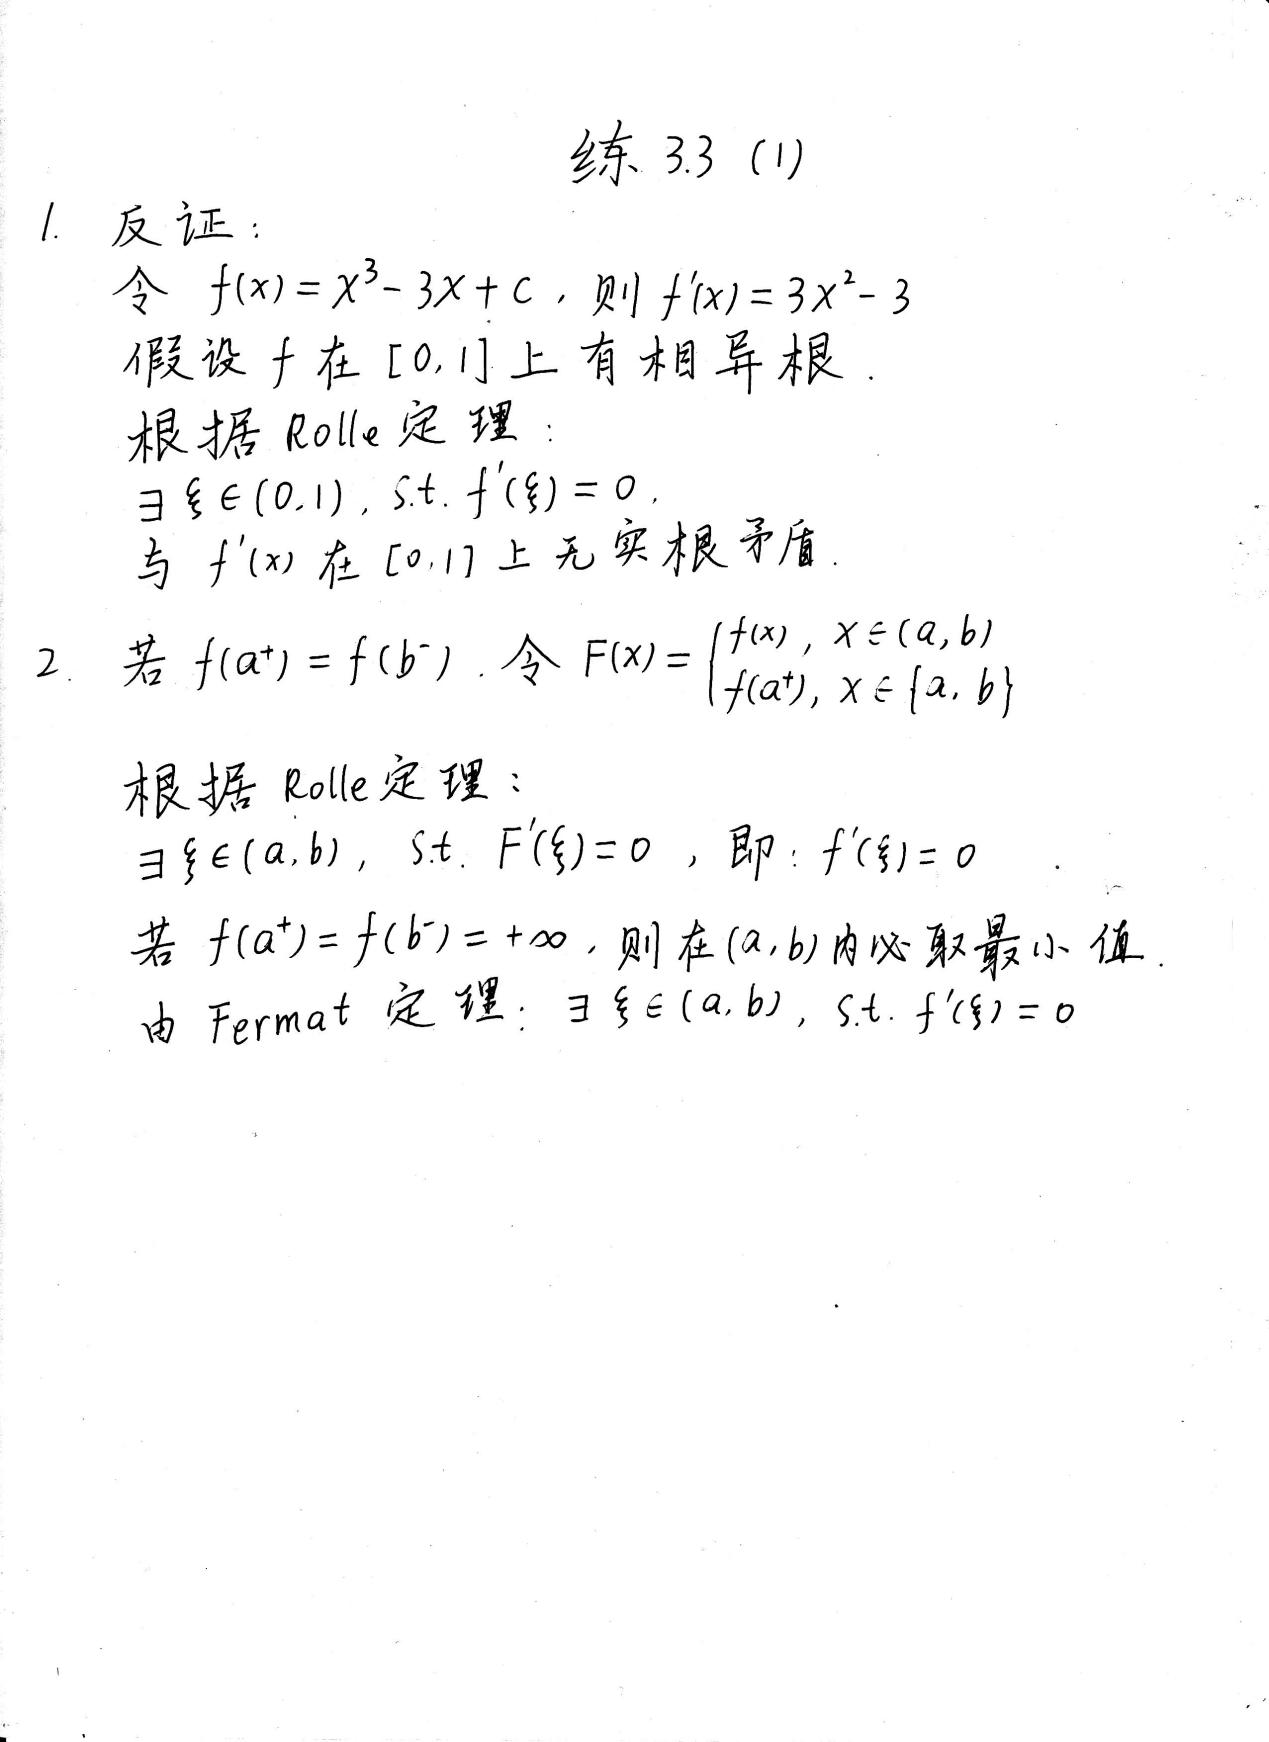 练 3.3 (1)
1. 反证:
令 f(x) = x³ - 3x + c, 则 f'(x) = 3x² - 3
假设 f 在 [0,1] 上有相异根.
根据 Rolle 定理:
∃ ξ ∈ (0,1), s.t. f'(ξ) = 0.
与 f'(x) 在 [0,1] 上无实根矛盾.
2. 若 f(a⁺) = f(b⁻). 令 F(x) = { f(x), x ∈ (a,b)
f(a⁺), x ∈ {a, b}
根据 Rolle 定理:
∃ ξ ∈ (a,b), s.t. F'(ξ) = 0, 即: f'(ξ) = 0
若 f(a⁺) = f(b⁻) = +∞, 则在 (a,b) 内必取最小值.
由 Fermat 定理: ∃ ξ ∈ (a,b), s.t. f'(ξ) = 0